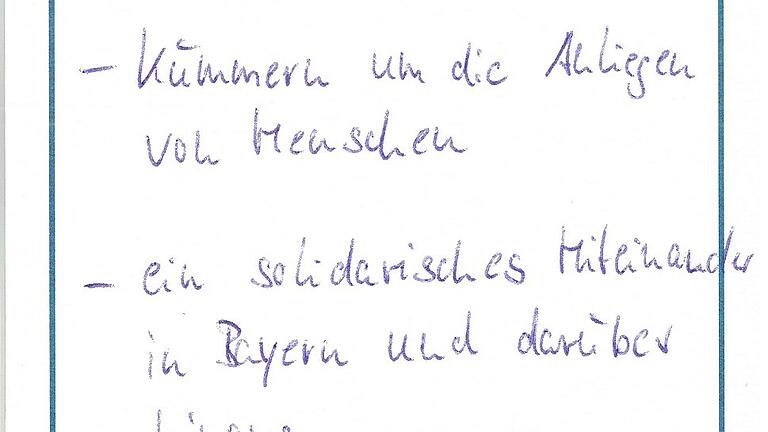 - Kümmern um die Anliegen
von Menschen
- ein solidarisches Miteinander
in Bayern und darüber